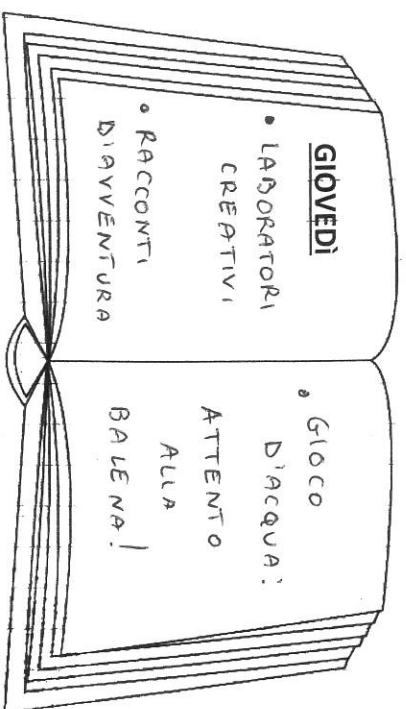 GIOVEDÌ
• LABORATORI
CREATIVI
• RACCONTI
D'AVVENTURA
• GIOCO
D'ACQUA:
ATTENTO
ALLA
BALENA!